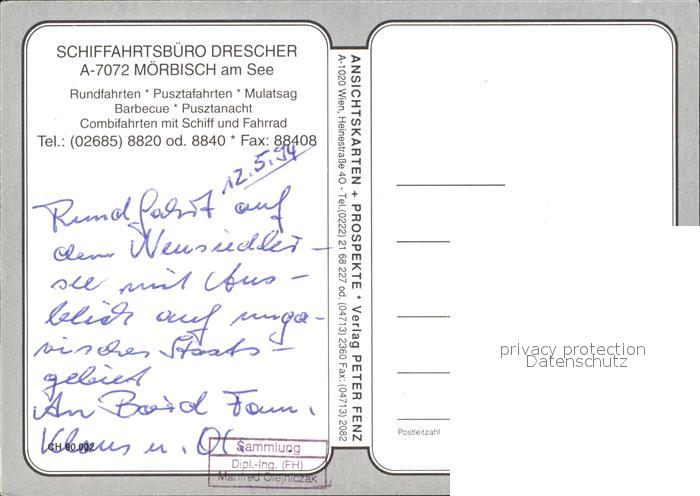 SCHIFFAHRTSBÜRO DRESCHER
A-7072 MÖRBISCH am See
Rundfahrten * Pusztafahrten * Mulatsag
Barbecue * Pusztanacht
Combifahrten mit Schiff und Fahrrad
Tel.: (02685) 8820 od. 8840 * Fax: 88408
12.5.94
Rundfahrt auf
dem Neusiedler-
see mit Aus-
blick auf unga-
risches Staats-
gebiet
An Bord Fam.
Klaus u.
CH 90.092
Sammlung
Dipl.-Ing. (FH)
Manfred Olejniczak
ANSICHTSKARTEN + PROSPEKTE * Verlag PETER FENZ
A-1020 Wien, Heinestraße 40 - Tel.(0222) 21 68 227 od. (04713) 2360 Fax: (04713) 2082
privacy protection
Datenschutz
Postleitzahl